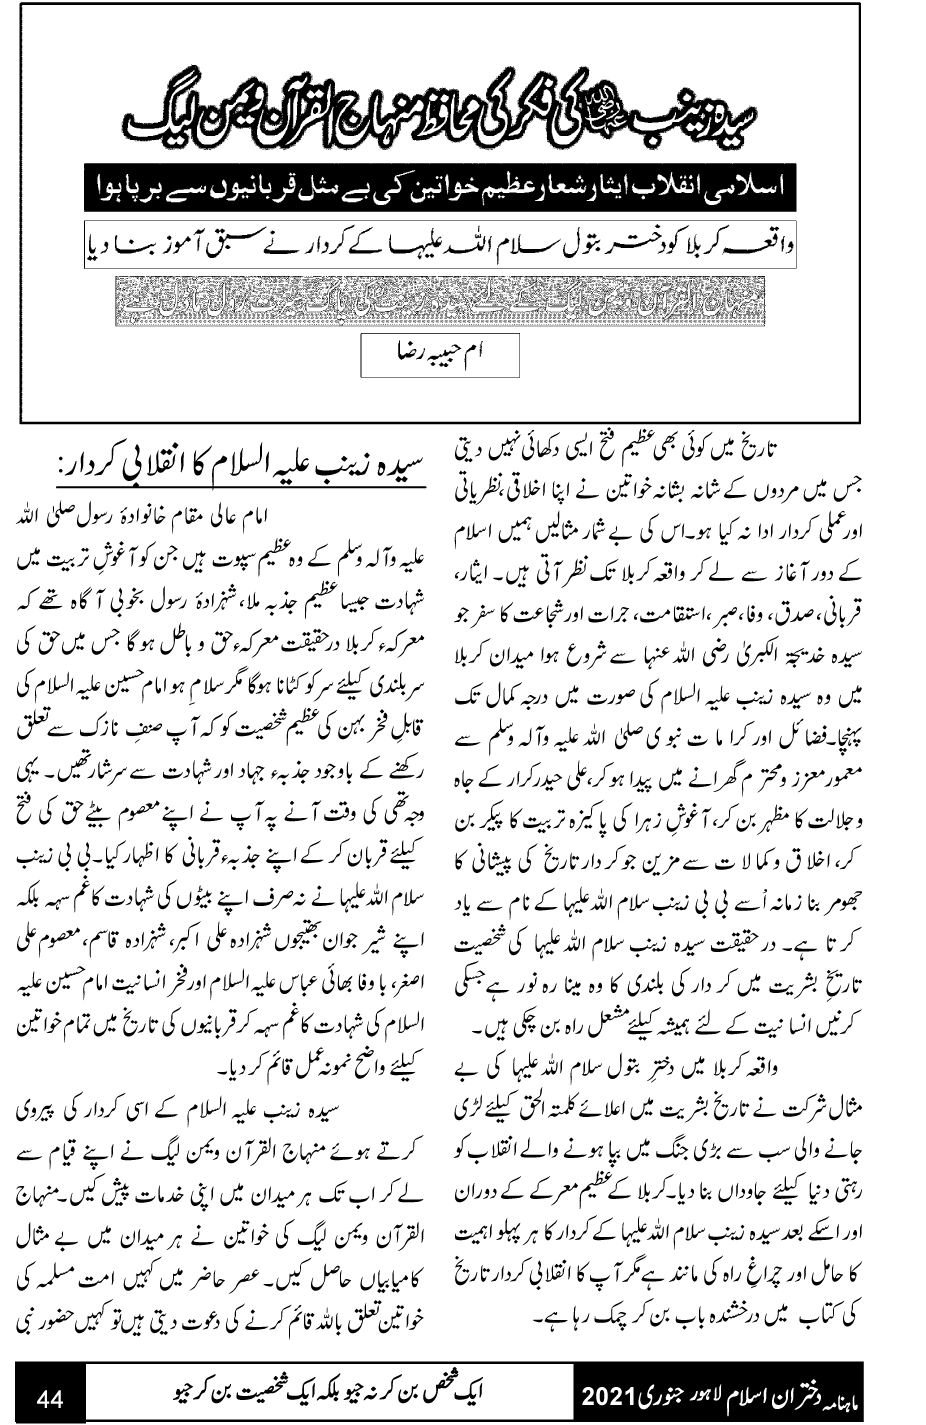 سیدہ زینب رضی اللہ عنہا کی فکر کی محافظ منہاج القرآن ویمن لیگ
اسلامی انقلاب ایثار شعار عظیم خواتین کی بے مثل قربانیوں سے برپا ہوا
واقعہ کربلا کو دختر بتول سلام اللہ علیہا کے کردار نے سبق آموز بنا دیا
منہاج القرآن ویمن لیگ کے لئے سیدہ زینب کی پاک سیرت رول ماڈل ہے
ام حبیبہ رضا
تاریخ میں کوئی بھی عظیم فتح ایسی دکھائی نہیں دیتی
جس میں مردوں کے شانہ بشانہ خواتین نے اپنا اخلاقی،نظریاتی
اورعملی کردار ادا نہ کیا ہو۔اس کی بے شمار مثالیں ہمیں اسلام
کے دور آغاز سے لے کر واقعہ کربلا تک نظر آتی ہیں۔ ایثار،
قربانی،صدق، وفا،صبر ،استقامت، جرات اورشجاعت کا سفر جو
سیدہ خدیجۃ الکبریٰ رضی اللہ عنہا سے شروع ہوا میدان کربلا
میں وہ سیدہ زینب علیہ السلام کی صورت میں درجہ کمال تک
پہنچا۔فضائل اور کرا ما ت نبو ی صلی اللہ علیہ وآلہ وسلم سے
معمور معزز ومحتر م گھرانے میں پیدا ہو کر،علی حیدر کرار کے جاہ
و جلالت کا مظہر بن کر، آغوشِ زہرا کی پا کیزہ تربیت کا پیکر بن
کر، اخلا ق و کما لا ت سے مزین جو کر دار تاریخ کی پیشانی کا
جھومر بنا زمانہ اُسے بی بی زینب سلام اللہ علیہا کے نام سے یاد
کر تا ہے۔ در حقیقت سیدہ زینب سلام اللہ علیہا کی شخصیت
تاریخِ بشریت میں کر دار کی بلندی کا وہ مینا رہ نور ہے جسکی
کرنیں انسا نیت کے لئے ہمیشہ کیلئے مشعل راہ بن چکی ہیں۔
واقعہ کربلا میں دخترِ بتول سلام اللہ علیہا کی بے
مثال شرکت نے تاریخِ بشریت میں اعلائے کلمتہ الحق کیلئے لڑی
جانے والی سب سے بڑی جنگ میں بپا ہونے والے انقلاب کو
رہتی دنیا کیلئے جاوداں بنا دیا۔کربلا کے عظیم معرکے کے دوران
اور اسکے بعد سیدہ زینب سلام اللہ علیہا کے کردار کا ہر پہلو اہمیت
کا حامل اور چراغِ راہ کی مانند ہے مگر آپ کا انقلابی کردار تاریخ
کی کتاب میں درخشندہ باب بن کر چمک رہا ہے۔
سیدہ زینب علیہ السلام کا انقلابی کردار:
امام عالی مقام خانوادۂ رسول صلی اللہ
علیہ وآلہ وسلم کے وہ عظیم سپوت ہیں جن کو آغوشِ تربیت میں
شہادت جیسا عظیم جذبہ ملا،شہزادۂ رسول بخوبی آ گاہ تھے کہ
معرکہء کربلا درحقیقت معرکہء حق و باطل ہو گا جس میں حق کی
سربلندی کیلئے سر کو کٹانا ہوگا مگر سلام ہو امام حسین علیہ السلام کی
قابلِ فخر بہن کی عظیم شخصیت کو کہ آپ صنفِ نازک سے تعلق
رکھنے کے باوجود جذبہء جہاد اور شہادت سے سرشار تھیں۔ یہی
وجہ تھی کی وقت آنے پہ آپ نے اپنے معصوم بیٹے حق کی فتح
کیلئے قربان کر کے اپنے جذبہء قربانی کا اظہار کیا۔بی بی زینب
سلام اللہ علیہا نے نہ صرف اپنے بیٹوں کی شہادت کا غم سہہ بلکہ
اپنے شیر جوان بھتیجوں شہزادہ علی اکبر، شہزادہ قاسم، معصوم علی
اصغر، با وفا بھائی عباس علیہ السلام اور فخر انسانیت امام حسین علیہ
السلام کی شہادت کا غم سہہ کر قربانیوں کی تاریخ میں تمام خواتین
کیلئے واضح نمونہ عمل قائم کر دیا۔
سیدہ زینب علیہ السلام کے اسی کردار کی پیروی
کرتے ہوئے منہاج القرآن ویمن لیگ نے اپنے قیام سے
لے کر اب تک ہر میدان میں اپنی خدمات پیش کیں۔منہاج
القرآن ویمن لیگ کی خواتین نے ہر میدان میں بے مثال
کامیابیاں حاصل کیں۔عصر حاضر میں کہیں امت مسلمہ کی
خواتین تعلق باللہ قائم کرنے کی دعوت دیتی ہیں تو کہیں حضور نبی
ماہنامہ دختران اسلام لاہور جنوری 2021
ایک شخص بن کر نہ جیو بلکہ ایک شخصیت بن کر جیو
44